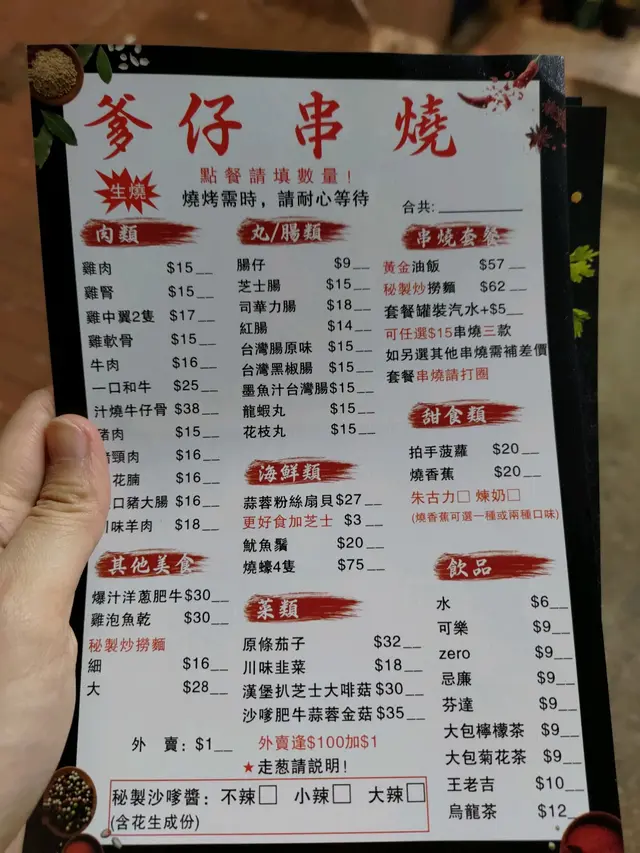 爹仔串燒
點餐請填數量！
生燒
燒烤需時，請耐心等待
合共:
肉類
雞肉 $15
雞腎 $15
雞中翼2隻 $17
雞軟骨 $15
牛肉 $16
一口和牛 $25
汁燒牛仔骨 $38
豬肉 $15
頸肉 $16
花腩 $16
口豬大腸 $16
味羊肉 $18
其他美食
爆汁洋蔥肥牛$30
雞泡魚乾 $30
秘製炒撈麵
細 $16
大 $28
丸/腸類
腸仔 $9
芝士腸 $15
司華力腸 $18
紅腸 $14
台灣腸原味 $15
台灣黑椒腸 $15
墨魚汁台灣腸$15
龍蝦丸 $15
花枝丸 $15
海鮮類
蒜蓉粉絲扇貝$27
更好食加芝士 $3
魷魚鬚 $20
燒蠔4隻 $75
菜類
原條茄子 $32
川味韭菜 $18
漢堡扒芝士大啡菇$30
沙嗲肥牛蒜蓉金菇$35
串燒套餐
黃金油飯 $57
秘製炒撈麵 $62
套餐罐裝汽水+$5
可任選$15串燒三款
如另選其他串燒需補差價
套餐串燒請打圈
甜食類
拍手菠蘿 $20
燒香蕉 $20
朱古力□ 煉奶□
(燒香蕉可選一種或兩種口味)
飲品
水 $6
可樂 $9
zero $9
忌廉 $9
芬達 $9
大包檸檬茶 $9
大包菊花茶 $9
王老吉 $10
烏龍茶 $12
外 賣: $1 外賣逢$100加$1
★走葱請説明！
秘製沙嗲醬：不辣□ 小辣□ 大辣□
(含花生成份)